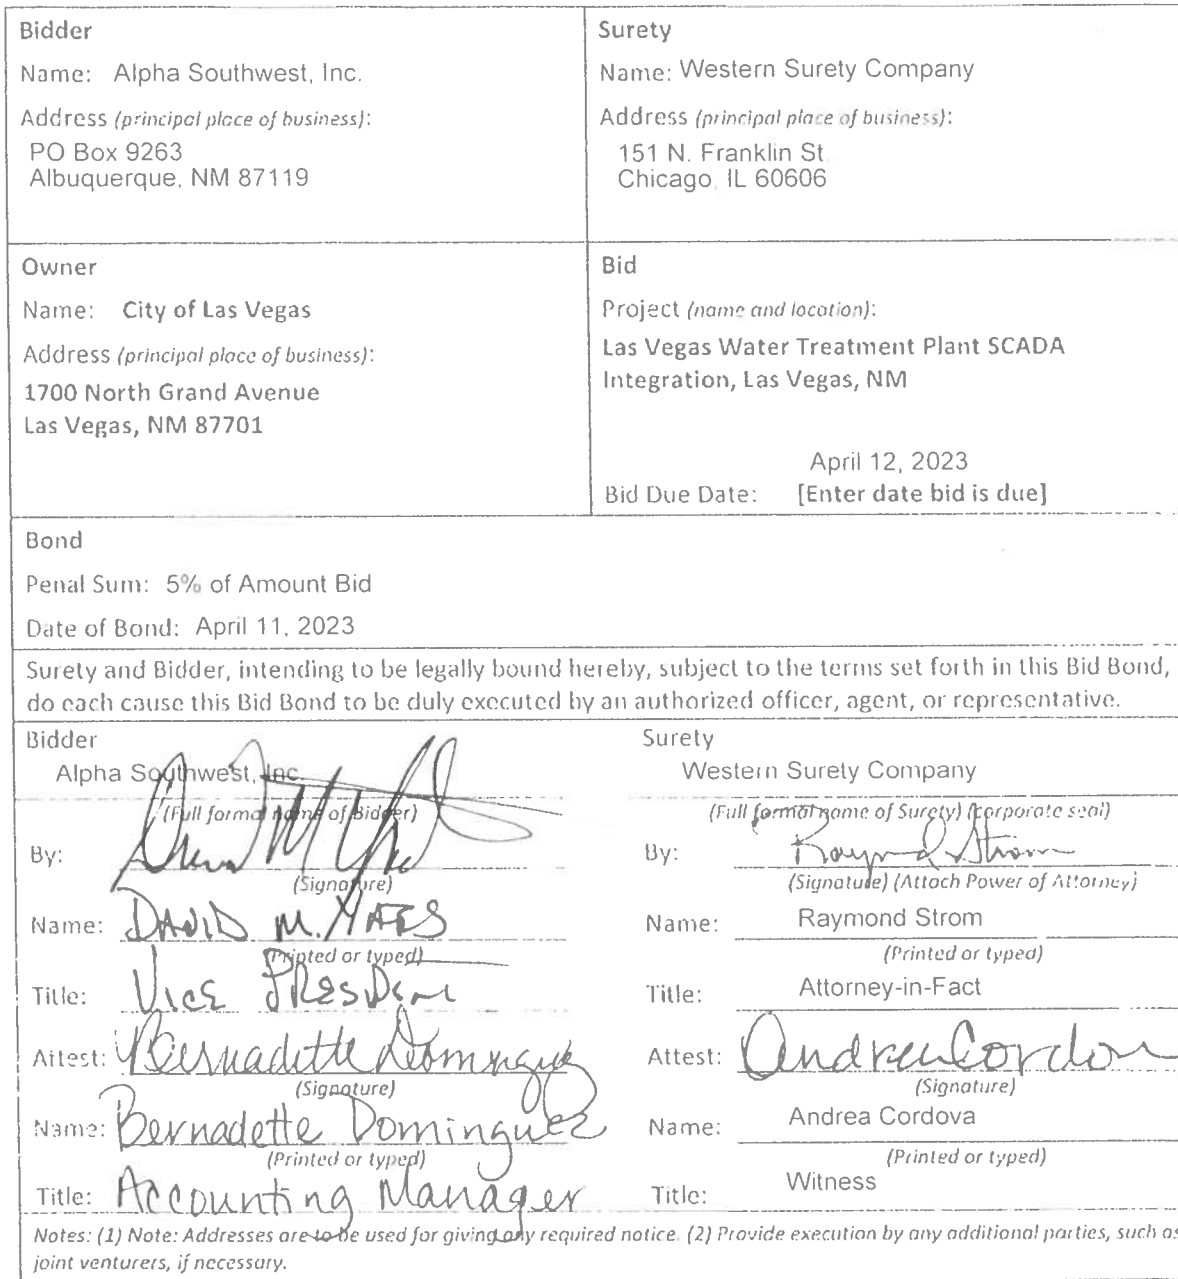 Bidder
Name: Alpha Southwest, Inc.
Address (principal place of business):
PO Box 9263
Albuquerque, NM 87119
Surety
Name: Western Surety Company
Address (principal place of business):
151 N. Franklin St.
Chicago, IL 60606
Owner
Name: City of Las Vegas
Address (principal place of business):
1700 North Grand Avenue
Las Vegas, NM 87701
Bid
Project (name and location):
Las Vegas Water Treatment Plant SCADA
Integration, Las Vegas, NM
April 12, 2023
Bid Due Date: [Enter date bid is due]
Bond
Penal Sum: 5% of Amount Bid
Date of Bond: April 11, 2023
Surety and Bidder, intending to be legally bound hereby, subject to the terms set forth in this Bid Bond,
do each cause this Bid Bond to be duly executed by an authorized officer, agent, or representative.
Bidder
Alpha Southwest, Inc.
(Full formal name of Bidder)
By:
(Signature)
Name: DAVID M. YATES
(Printed or typed)
Title: VICE PRESIDENT
Attest: Bernadette Dominguez
(Signature)
Name: Bernadette Dominguez
(Printed or typed)
Title: Accounting Manager
Surety
Western Surety Company
(Full formal name of Surety) (corporate seal)
By: Raymond Strom
(Signature) (Attach Power of Attorney)
Name: Raymond Strom
(Printed or typed)
Title: Attorney-in-Fact
Attest: Andrea Cordova
(Signature)
Name: Andrea Cordova
(Printed or typed)
Title: Witness
Notes: (1) Note: Addresses are to be used for giving any required notice. (2) Provide execution by any additional parties, such as
joint venturers, if necessary.